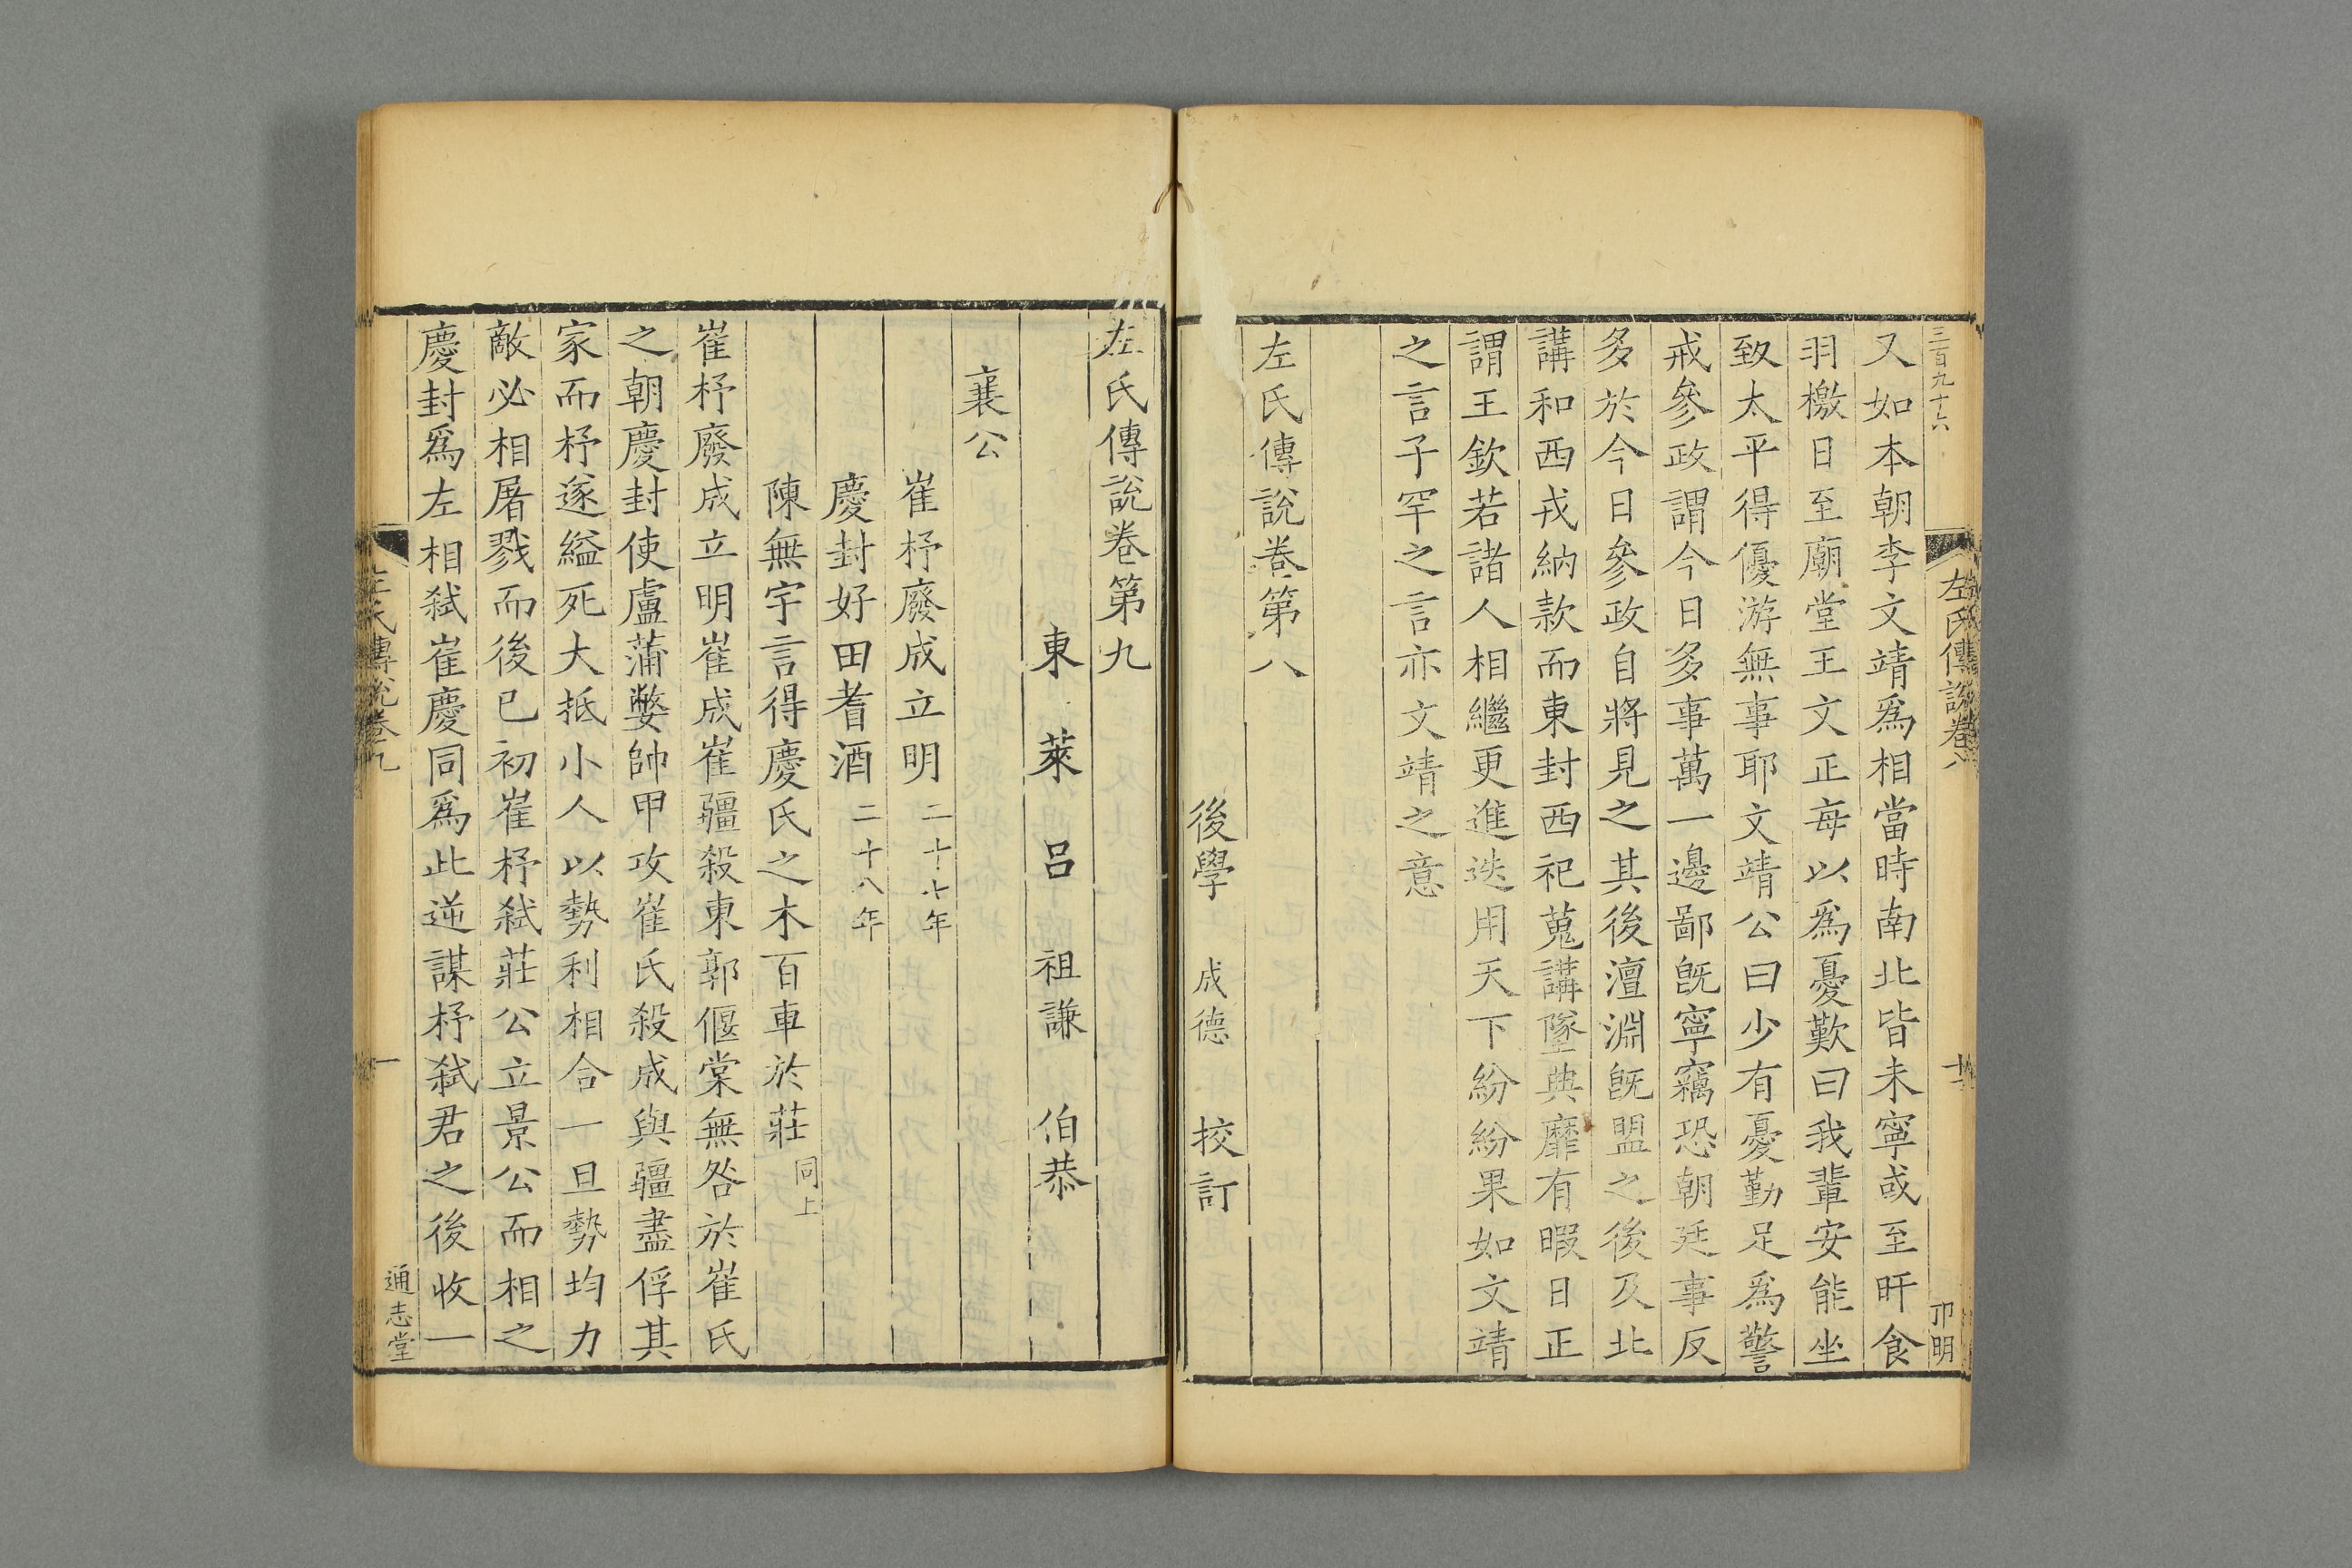 三百九十六
左氏傳說卷八
卭明
又如本朝李文靖爲相當時南北皆未寧或至旰食
羽檄日至廟堂王文正每以爲憂歎曰我輩安能坐
致太平得優游無事耶文靖公曰少有憂勤足爲警
戒參政謂今日多事萬一邊鄙旣寧竊恐朝廷事反
多於今日參政自將見之其後澶淵旣盟之後及北
講和西戎納款而東封西祀蒐講墜典靡有暇日正
謂王欽若諸人相繼更進迭用天下紛紛果如文靖
之言子罕之言亦文靖之意
左氏傳說卷第八
後學 成德 挍訂
左氏傳說卷第九
東萊呂祖謙伯恭
襄公
崔杼廢成立明二十七年
慶封好田耆酒二十八年
陳無宇言得慶氏之木百車於莊同上
崔杼廢成立明崔成崔疆殺東郭偃棠無咎於崔氏
之朝慶封使盧蒲嫳帥甲攻崔氏殺成與疆盡俘其
家而杼遂縊死大抵小人以勢利相合一旦勢均力
敵必相屠戮而後已初崔杼弒莊公立景公而相之
慶封爲左相弒崔慶同爲此逆謀杼弒君之後收一
左氏傳說卷九
一
通志堂